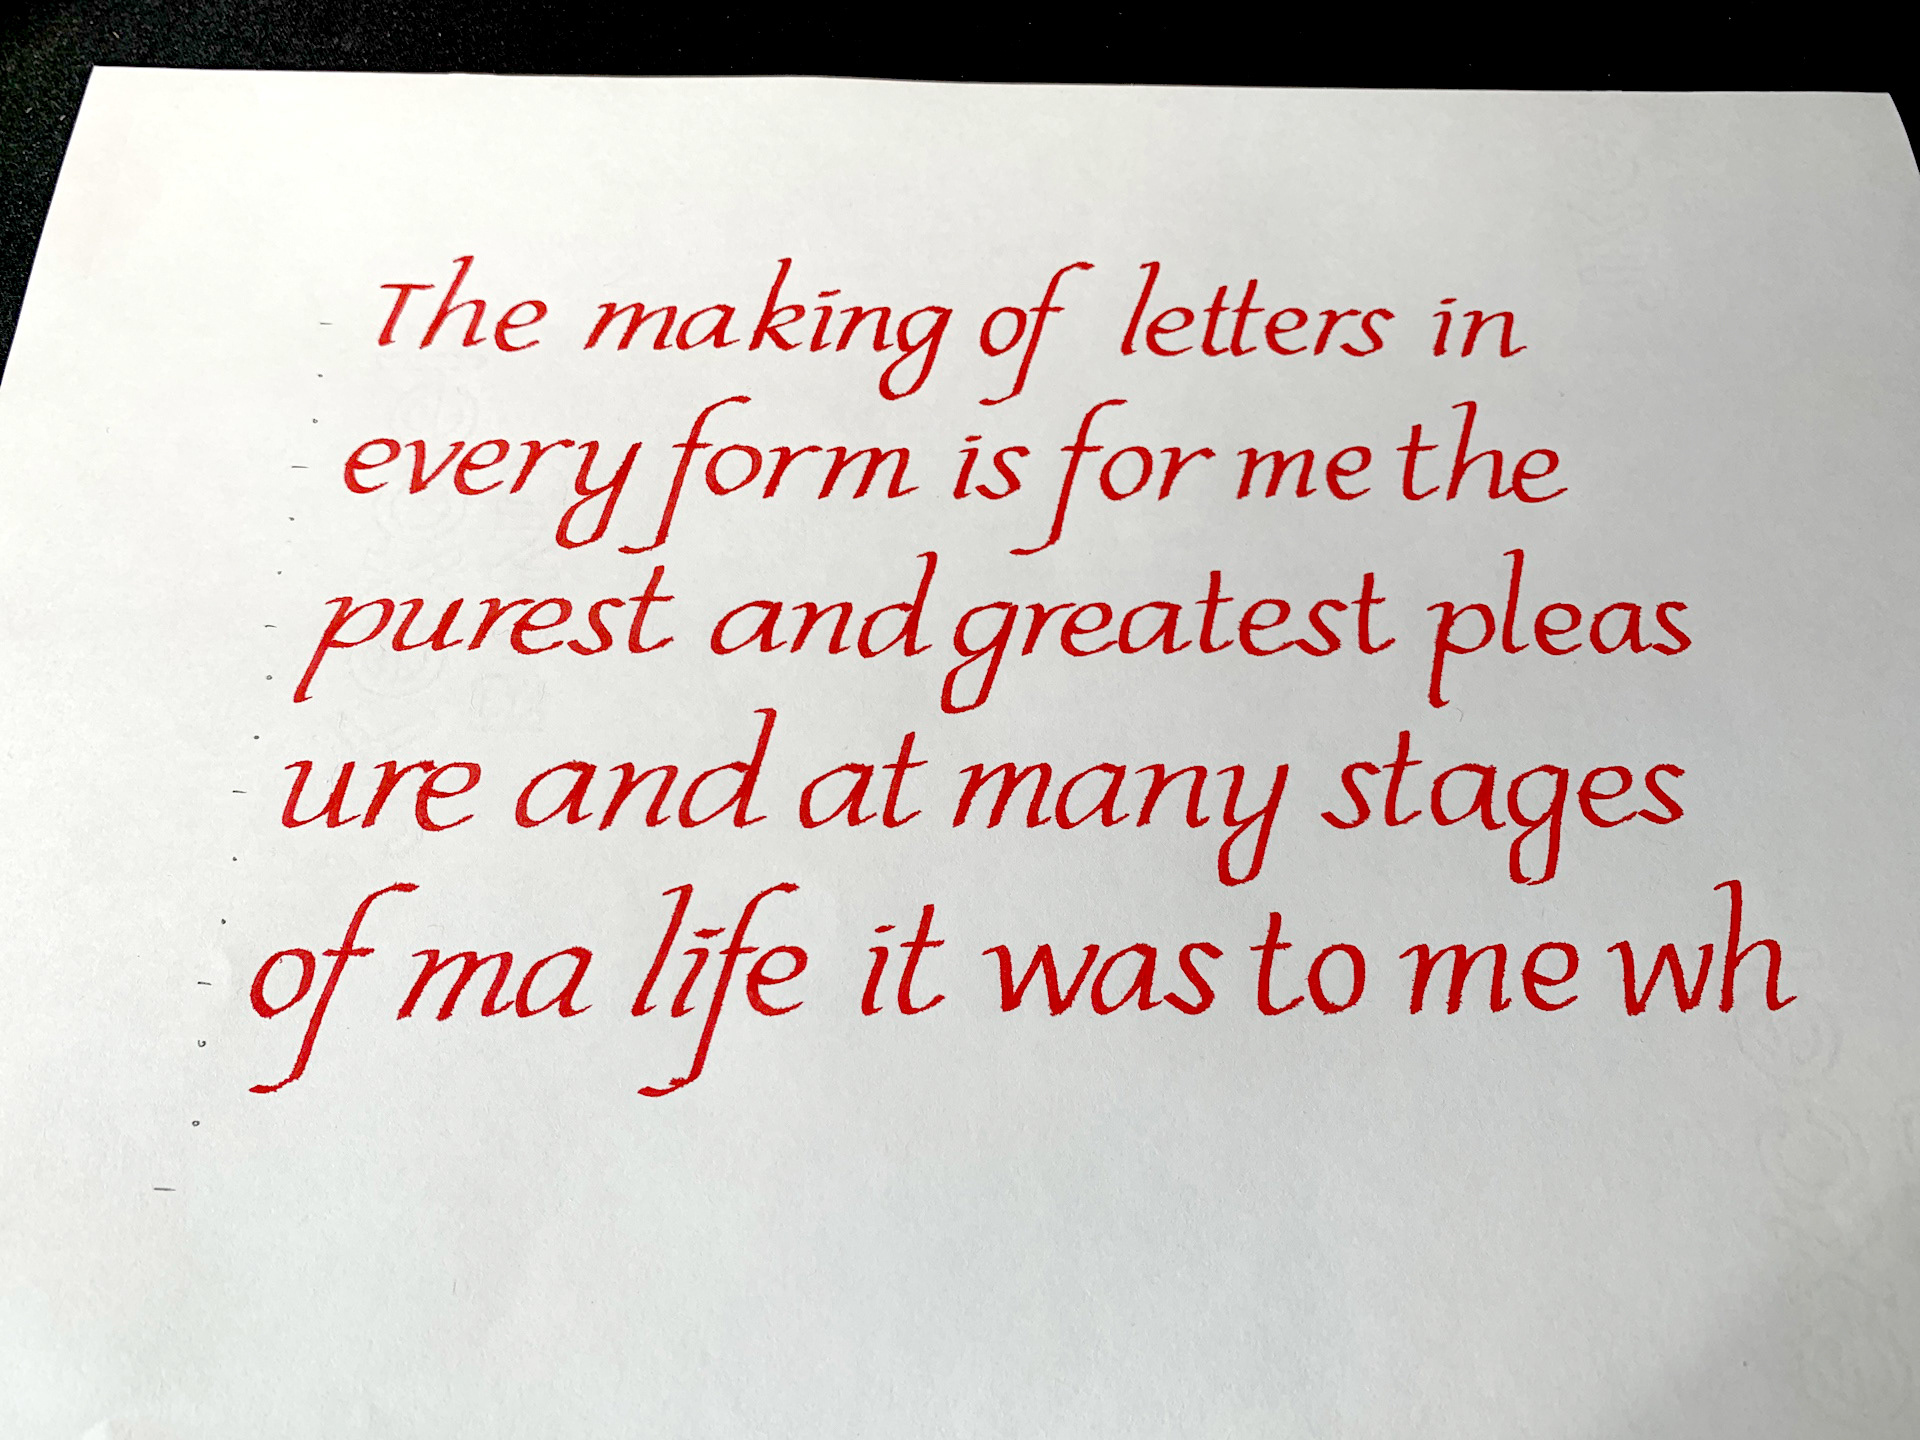 The making of letters in
every form is for me the
purest and greatest pleas
ure and at many stages
of ma life it was to me wh